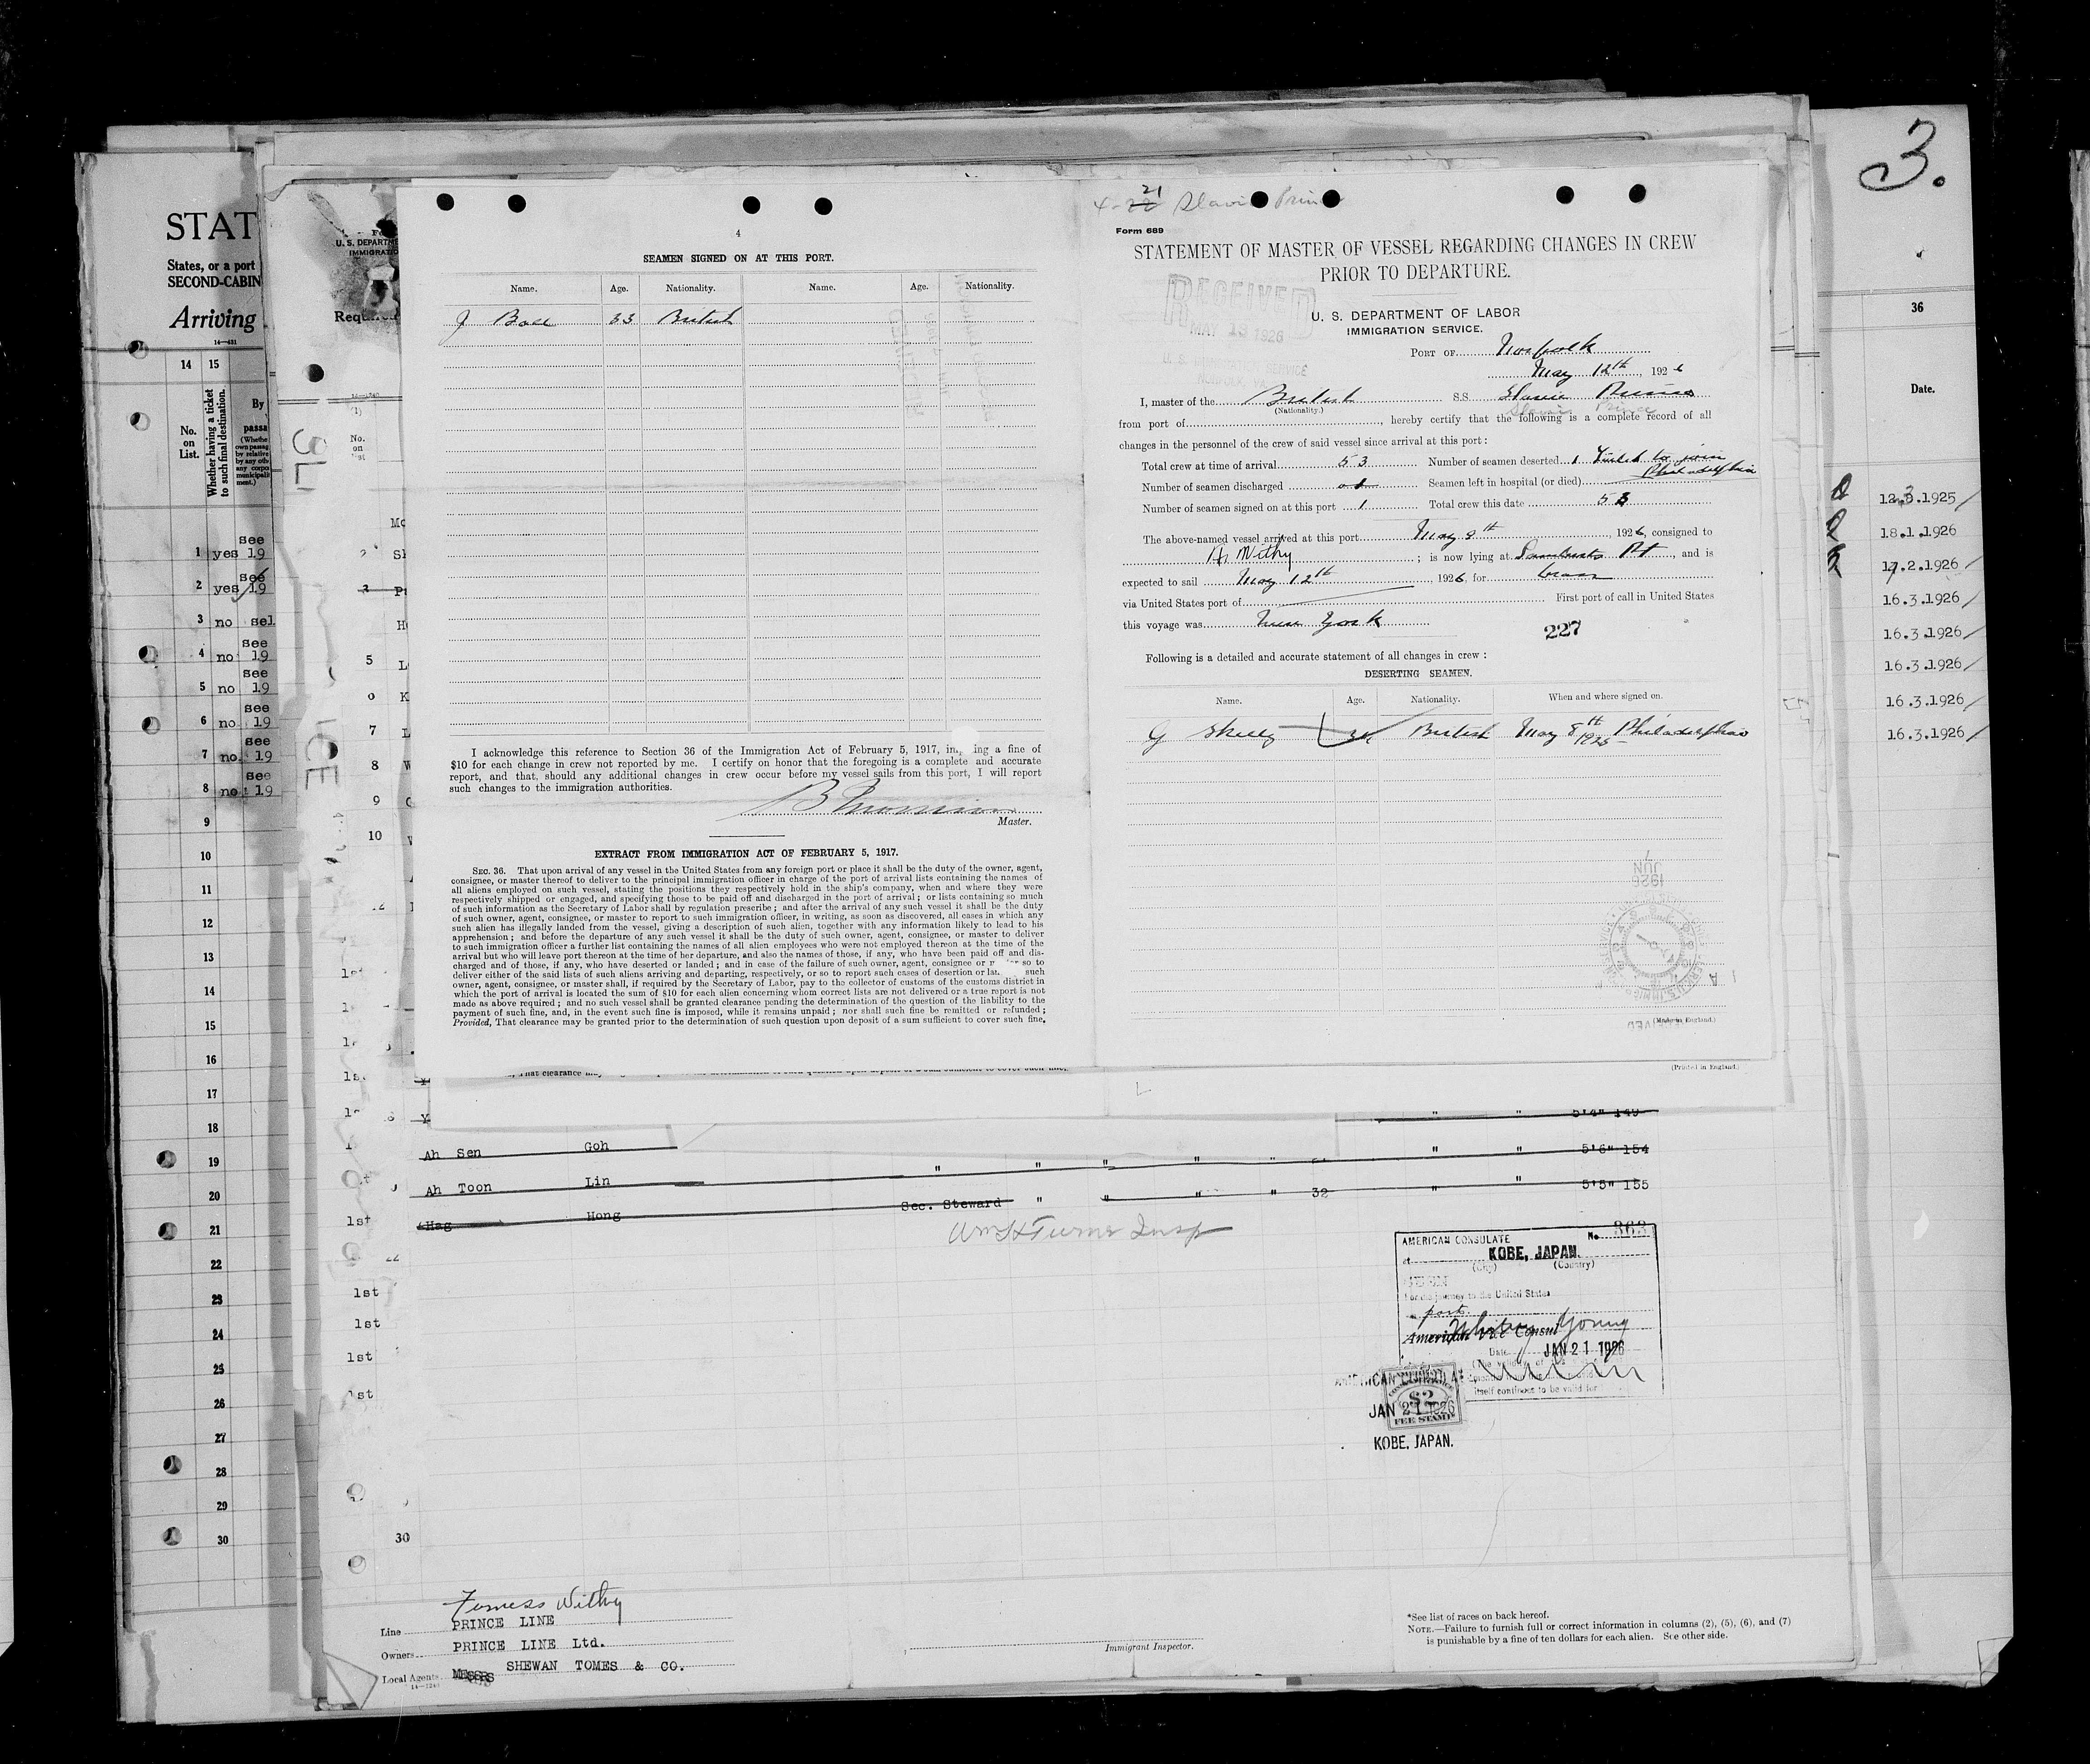 3.
STAT
States, or a port
SECOND-CABIN
Arriving
14—431
14 15
No. on List.
Whether having a ticket to such final destination.
By
passa
see
1 yes 19
see
2 yes 19
3 no sel
see
4 no 19
see
5 no 19
see
6 no 19
see
7 no 19
see
8 no 19
9
10
11
12
13
14
15
16
17
18
19
20
21
22
23
24
25
26
27
28
29
30
U. S. DEPARTME
IMMIGRATIO
4
SEAMEN SIGNED ON AT THIS PORT.
Name. Age. Nationality. Name. Age. Nationality.
J 33 British
I acknowledge this reference to Section 36 of the Immigration Act of February 5, 1917, im ing a fine of
$10 for each change in crew not reported by me. I certify on honor that the foregoing is a complete and accurate
report, and that, should any additional changes in crew occur before my vessel sails from this port, I will report
such changes to the immigration authorities.
Master.
EXTRACT FROM IMMIGRATION ACT OF FEBRUARY 5, 1917.
SEC. 36. That upon arrival of any vessel in the United States from any foreign port or place it shall be the duty of the owner, agent,
consignee, or master thereof to deliver to the principal immigration officer in charge of the port of arrival lists containing the names of
all aliens employed on such vessel, stating the positions they respectively hold in the ship's company, when and where they were
respectively shipped or engaged, and specifying those to be paid off and discharged in the port of arrival; or lists containing so much
of such information as the Secretary of Labor shall by regulation prescribe; and after the arrival of any such vessel it shall be the duty
of such owner, agent, consignee, or master to report to such immigration officer, in writing, as soon as discovered, all cases in which any
such alien has illegally landed from the vessel, giving a description of such alien, together with any information likely to lead to his
apprehension; and before the departure of any such vessel it shall be the duty of such owner, agent, consignee, or master to deliver
to such immigration officer a further list containing the names of all alien employees who were not employed thereon at the time of the
arrival but who will leave port thereon at the time of her departure, and also the names of those, if any, who have been paid off and dis-
charged and of those, if any, who have deserted or landed; and in case of the failure of such owner, agent, consignee or so to
deliver either of the said lists of such aliens arriving and departing, respectively, or so to report such cases of desertion or such
owner, agent, consignee, or master shall, if required by the Secretary of Labor, pay to the collector of customs of the customs district in
which the port of arrival is located the sum of $10 for each alien concerning whom correct lists are not delivered or a true report is not
made as above required; and no such vessel shall be granted clearance pending the determination of the question of the liability to the
payment of such fine, and, in the event such fine is imposed, while it remains unpaid; nor shall such fine be remitted or refunded;
Provided, That clearance may be granted prior to the determination of such question upon deposit of a sum sufficient to cover such fine.
Form 689
STATEMENT OF MASTER OF VESSEL REGARDING CHANGES IN CREW
PRIOR TO DEPARTURE.
RECEIVED
MAY 13 1926
U. S. IMMIGRATION SERVICE
NORFOLK, VA.
U. S. DEPARTMENT OF LABOR
IMMIGRATION SERVICE.
PORT OF Norfolk
May 12th, 1926
I, master of the British S.S. Slavic Prince
(Nationality.) Slavic Prince
from port of , hereby certify that the following is a complete record of all
changes in the personnel of the crew of said vessel since arrival at this port:
Total crew at time of arrival 53 Number of seamen deserted 1 Failed to join
Philadelphia
Number of seamen discharged Seamen left in hospital (or died)
Number of seamen signed on at this port 1 Total crew this date 53
The above-named vessel arrived at this port May 9th, 1926, consigned to
Withy ; is now lying at Pt , and is
expected to sail May 12th, 1926, for
via United States port of First port of call in United States
this voyage was New York
227
Following is a detailed and accurate statement of all changes in crew:
DESERTING SEAMEN.
Name. Age. Nationality. When and where signed on.
G Skelly British May 8th 1925 Philadelphia
(Made in England.)
(Printed in England.)
36
Date.
12.3.1925
18.1.1926
17.2.1926
16.3.1926
16.3.1926
16.3.1926
16.3.1926
16.3.1926
5'4" 149
Ah Sen Goh " " 5'6" 154
Ah Toon Lin " " " " " " " 5'5" 155
Hag Hong Sec. Steward " " " " 32
Wm H Turner Insp
1st
1st
1st
1st
1st
30
AMERICAN CONSULATE No. 363
at KOBE, JAPAN.
(City) (Country)
SEEN
For the journey to the United States
port.
American Vice Consul
Date JAN 21 1926
itself continues to be valid for
JAN 21 1926
$2
FEE STAMP
KOBE, JAPAN.
Furness Withy
Line PRINCE LINE
Owners PRINCE LINE Ltd.
Local Agents MESSRS SHEWAN TOMES & CO.
14—1240
Immigrant Inspector.
*See list of races on back hereof.
NOTE.—Failure to furnish full or correct information in columns (2), (5), (6), and (7)
is punishable by a fine of ten dollars for each alien. See other side.